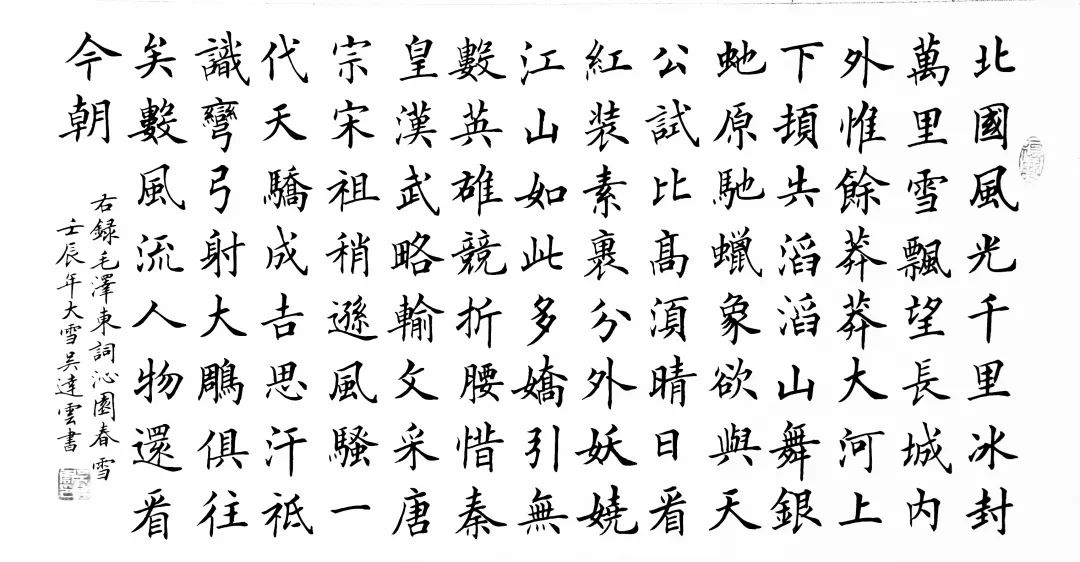 北國風光千里冰封
萬里雪飄望長城內
外惟餘莽莽大河上
下頓失滔滔山舞銀
虵原馳蠟象欲與天
公試比高須晴日看
紅裝素裹分外妖嬈
江山如此多嬌引無
數英雄競折腰惜秦
皇漢武略輸文采唐
宗宋祖稍遜風騷一
代天驕成吉思汗祗
識彎弓射大鵰俱往
矣數風流人物還看
今朝
右録毛澤東詞沁園春雪
壬辰年大雪吴達雲書